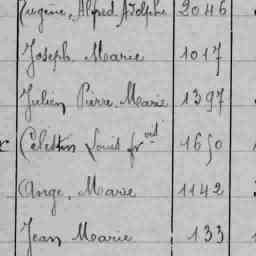 Eugène, Alfred, Adolphe 2046
Joseph, Marie 1017
Julien, Pierre, Marie 1397
Célestin Louis frois 1650
Ange, Marie 1142
Jean Marie 133